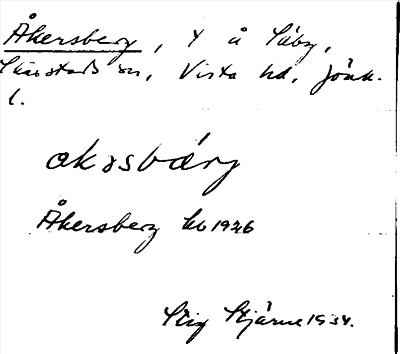 Åkersberg, t å Säby,
Skärstads sn, Vista hd, Jönk.
l.
akəsbærj
Åkersberg kb 1926
Stig Stjärne 1934.